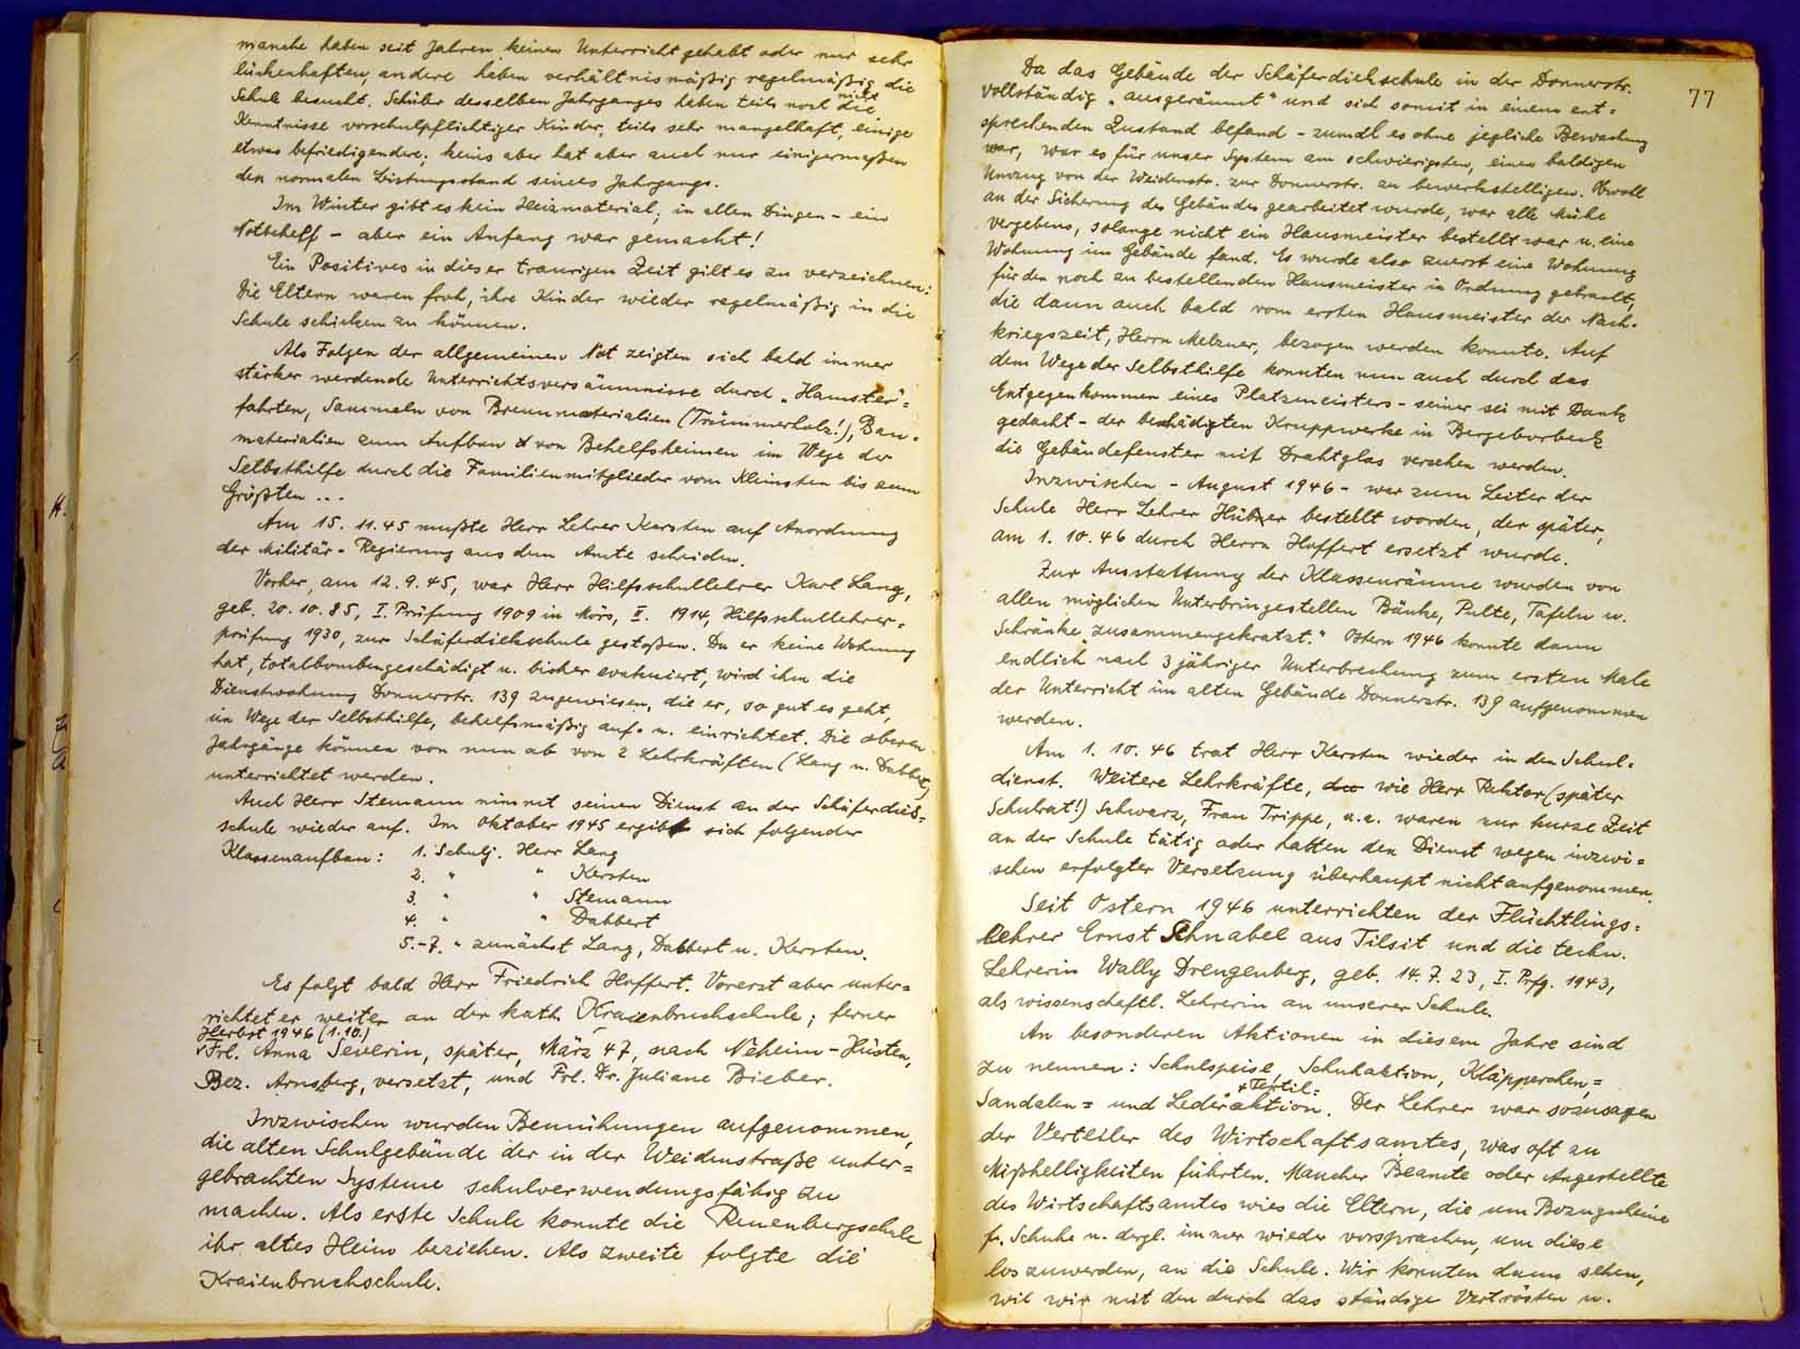 manche haben seit Jahren keinen Unterricht gehabt oder nur sehr
lückenhaften, andere haben verhältnismäßig regelmäßig die
Schule besucht. Schüler desselben Jahrganges haben teils noch nicht die
Kenntnisse vorschulpflichtiger Kinder, teils sehr mangelhaft, einige
etwas befriedigendere; keins aber hat aber auch nur einigermaßen
den normalen Leistungsstand seines Jahrgangs.
Im Winter gibt es kein Heizmaterial; in allen Dingen - ein
Notbehelf - aber ein Anfang war gemacht!
Ein Positives in dieser traurigen Zeit gilt es zu verzeichnen:
Die Eltern waren froh, ihre Kinder wieder regelmäßig in die
Schule schicken zu können.
Als Folgen der allgemeinen Not zeigten sich bald immer
stärker werdende Unterrichtsversäumnisse durch "Hamster"=
fahrten, Sammeln von Brennmaterialien (Trümmerholz!), Bau-
materialien zum Aufbau von Behelfsheimen im Wege der
Selbsthilfe durch die Familienmitglieder vom Kleinsten bis zum
Größten ...
Am 15. 11. 45 mußte Herr Lehrer Kersten auf Anordnung
der Militär-Regierung aus dem Amte scheiden.
Vorher, am 12. 9. 45, war Herr Hilfsschullehrer Karl Lang,
geb. 20. 10. 85, I. Prüfung 1909 in Mörs, II. 1914, Hilfsschullehrer=
prüfung 1930, zur Schäferdiekschule gestoßen. Da er keine Wohnung
hat, totalbombengeschädigt u. bisher evakuiert, wird ihm die
Dienstwohnung Donnerstr. 139 zugewiesen, die er, so gut es geht,
im Wege der Selbsthilfe, behelfsmäßig auf- u. einrichtet. Die oberen
Jahrgänge können von nun ab von 2 Lehrkräften (Lang u. Dabbert)
unterrichtet werden.
Auch Herr Stemann nimmt seinen Dienst an der Schäferdiek=
schule wieder auf. Im Oktober 1945 ergibt sich folgender
Klassenaufbau: 1. Schulj. Herr Lang
2. " " Kersten
3. " " Stemann
4. " " Dabbert
5.-7. " zunächst Lang, Dabbert u. Kersten.
Es folgt bald Herr Friedrich Hoffert. Vorerst aber unter=
richtet er weiter an der kath. Kraienbruchschule; ferner
Herbst 1946 (1.10.)
Frl. Anna Severin, später, März 47, nach Neheim-Hüsten,
Bez. Arnsberg, versetzt, und Frl. Dr. Juliane Bieber.
Inzwischen wurden Bemühungen aufgenommen,
die alten Schulgebäude der in der Weidenstraße unter=
gebrachten Systeme schulverwendungsfähig zu
machen. Als erste Schule konnte die Reuenbergschule
ihr altes Heim beziehen. Als zweite folgte die
Kraienbruchschule.
77
Da das Gebäude der Schäferdiekschule in der Donnerstr.
vollständig "ausgeräumt" und sich somit in einem ent=
sprechenden Zustand befand - zumal es ohne jegliche Bewachung
war, war es für unser System am schwierigsten, einen baldigen
Umzug von der Weidenstr. zur Donnerstr. zu bewerkstelligen. Obwohl
an der Sicherung des Gebäudes gearbeitet wurde, war alle Mühe
vergebens, solange nicht ein Hausmeister bestellt war u. eine
Wohnung im Gebäude fand. Es wurde also zuerst eine Wohnung
für den noch zu bestellenden Hausmeister in Ordnung gebracht,
die dann auch bald vom ersten Hausmeister der Nach-
kriegszeit, Herrn Melzner, bezogen werden konnte. Auf
dem Wege der Selbsthilfe konnten nun auch durch das
Entgegenkommen eines Platzmeisters - seiner sei mit Dank
gedacht - der beschädigten Kruppwerke in Bergeborbeck
die Gebäudefenster mit Drahtglas versehen werden.
Inzwischen - August 1946 - war zum Leiter der
Schule Herr Lehrer Hübner bestellt worden, der später,
am 1. 10. 46 durch Herrn Hoffert ersetzt wurde.
Zur Ausstattung der Klassenräume wurden von
allen möglichen Unterbringestellen Bänke, Pulte, Tafeln u.
Schränke "zusammengekratzt." Ostern 1946 konnte dann
endlich nach 3 jähriger Unterbrechung zum ersten Male
der Unterricht im alten Gebäude Donnerstr. 139 aufgenommen
werden.
Am 1. 10. 46 trat Herr Kersten wieder in den Schul=
dienst. Weitere Lehrkräfte, wie Herr Rektor (später
Schulrat!) Schwarz, Frau Trippe, u.a. waren nur kurze Zeit
an der Schule tätig oder hatten den Dienst wegen inzwi=
schen erfolgter Versetzung überhaupt nicht aufgenommen.
Seit Ostern 1946 unterrichten der Flüchtlings=
lehrer Ernst Schnabel aus Tilsit und die techn.
Lehrerin Wally Drengenberg, geb. 14. 7. 23, I. Prfg. 1943,
als wissenschaftl. Lehrerin an unserer Schule.
An besonderen Aktionen in diesem Jahre sind
zu nennen: Schulspeise, Schuhaktion, Kläpperchen=
+ Textil=
Sandalen= und Lederaktion. Der Lehrer war sozusagen
der Verteiler des Wirtschaftsamtes, was oft zu
Mißhelligkeiten führten. Mancher Beamte oder Angestellte
des Wirtschaftsamtes wies die Eltern, die um Bezugscheine
fr. Schuhe u. dergl. immer wieder vorsprachen, um diese
loszuwerden, an die Schule. Wir konnten dann sehen,
wie wir mit den durch das ständige Vertrösten u.